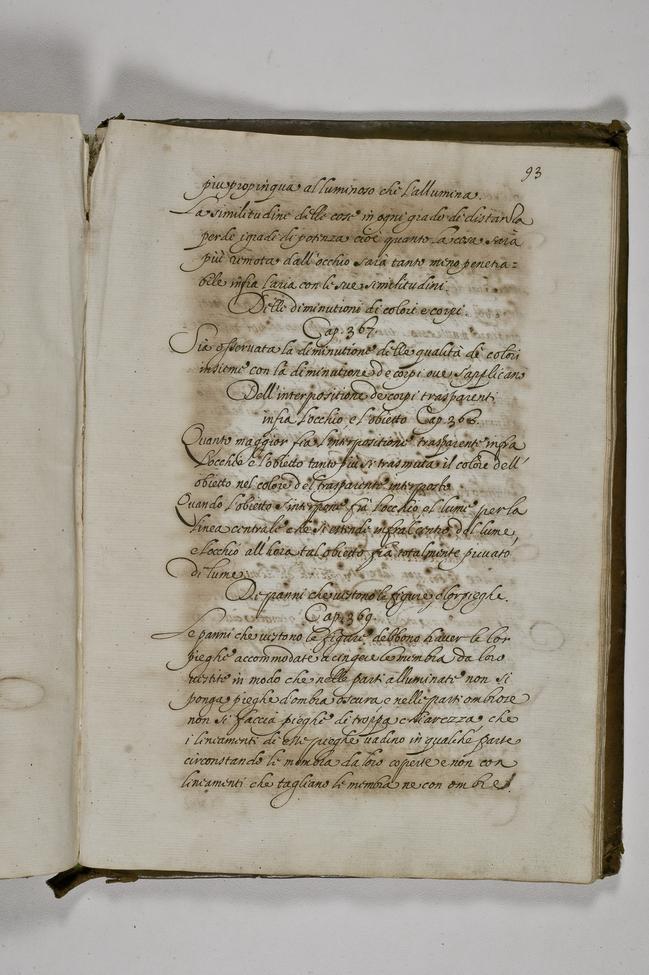 93
piu propinqua al luminoso che l'allumina.
La similitudine delle cose in ogni grado de distanza
perde i gradi di potenza cioè quanto la cosa sarà
più remota dall'occhio sarà tanto meno penetra=
bile infra l'aria con le sue similitudini.
Delle diminutioni di colori e corpi.
Cap. 367.
Sia osservata la diminutione delle qualità de colori
insieme con la diminutione de corpi oue s'applicano
Dell'interpositione de corpi trasparenti
infra l'occhio e l'obietto Cap. 368.
Quanto maggior fia l'interpositione trasparente infra
l'occhio e l'obietto tanto più si trasmuta il colore dell'
obietto nel colore del trasparente interposto
Quando l'obietto s'interpone fra l'occhio e'l lume per la
linea centrale che si estende infra'l centro del lume,
e l'occhio all'hora tal obietto fia totalmente priuato
di lume.
De panni che uestono le figure, e lor pieghe.
Cap. 369.
Le panni che uestono le figure debbono hauer le lor
pieghe accommodate a cingere le membra da loro
uestite in modo che nelle parti alluminate non si
ponga pieghe d'ombra oscura e nelle parti ombrose
non si faccia pieghe di troppa chiarezza che
i lineamenti di esse pieghe uadino in qualche parte
circonstando le membra da loro coperte e non con
lineamenti che tagliano le membra ne con ombre